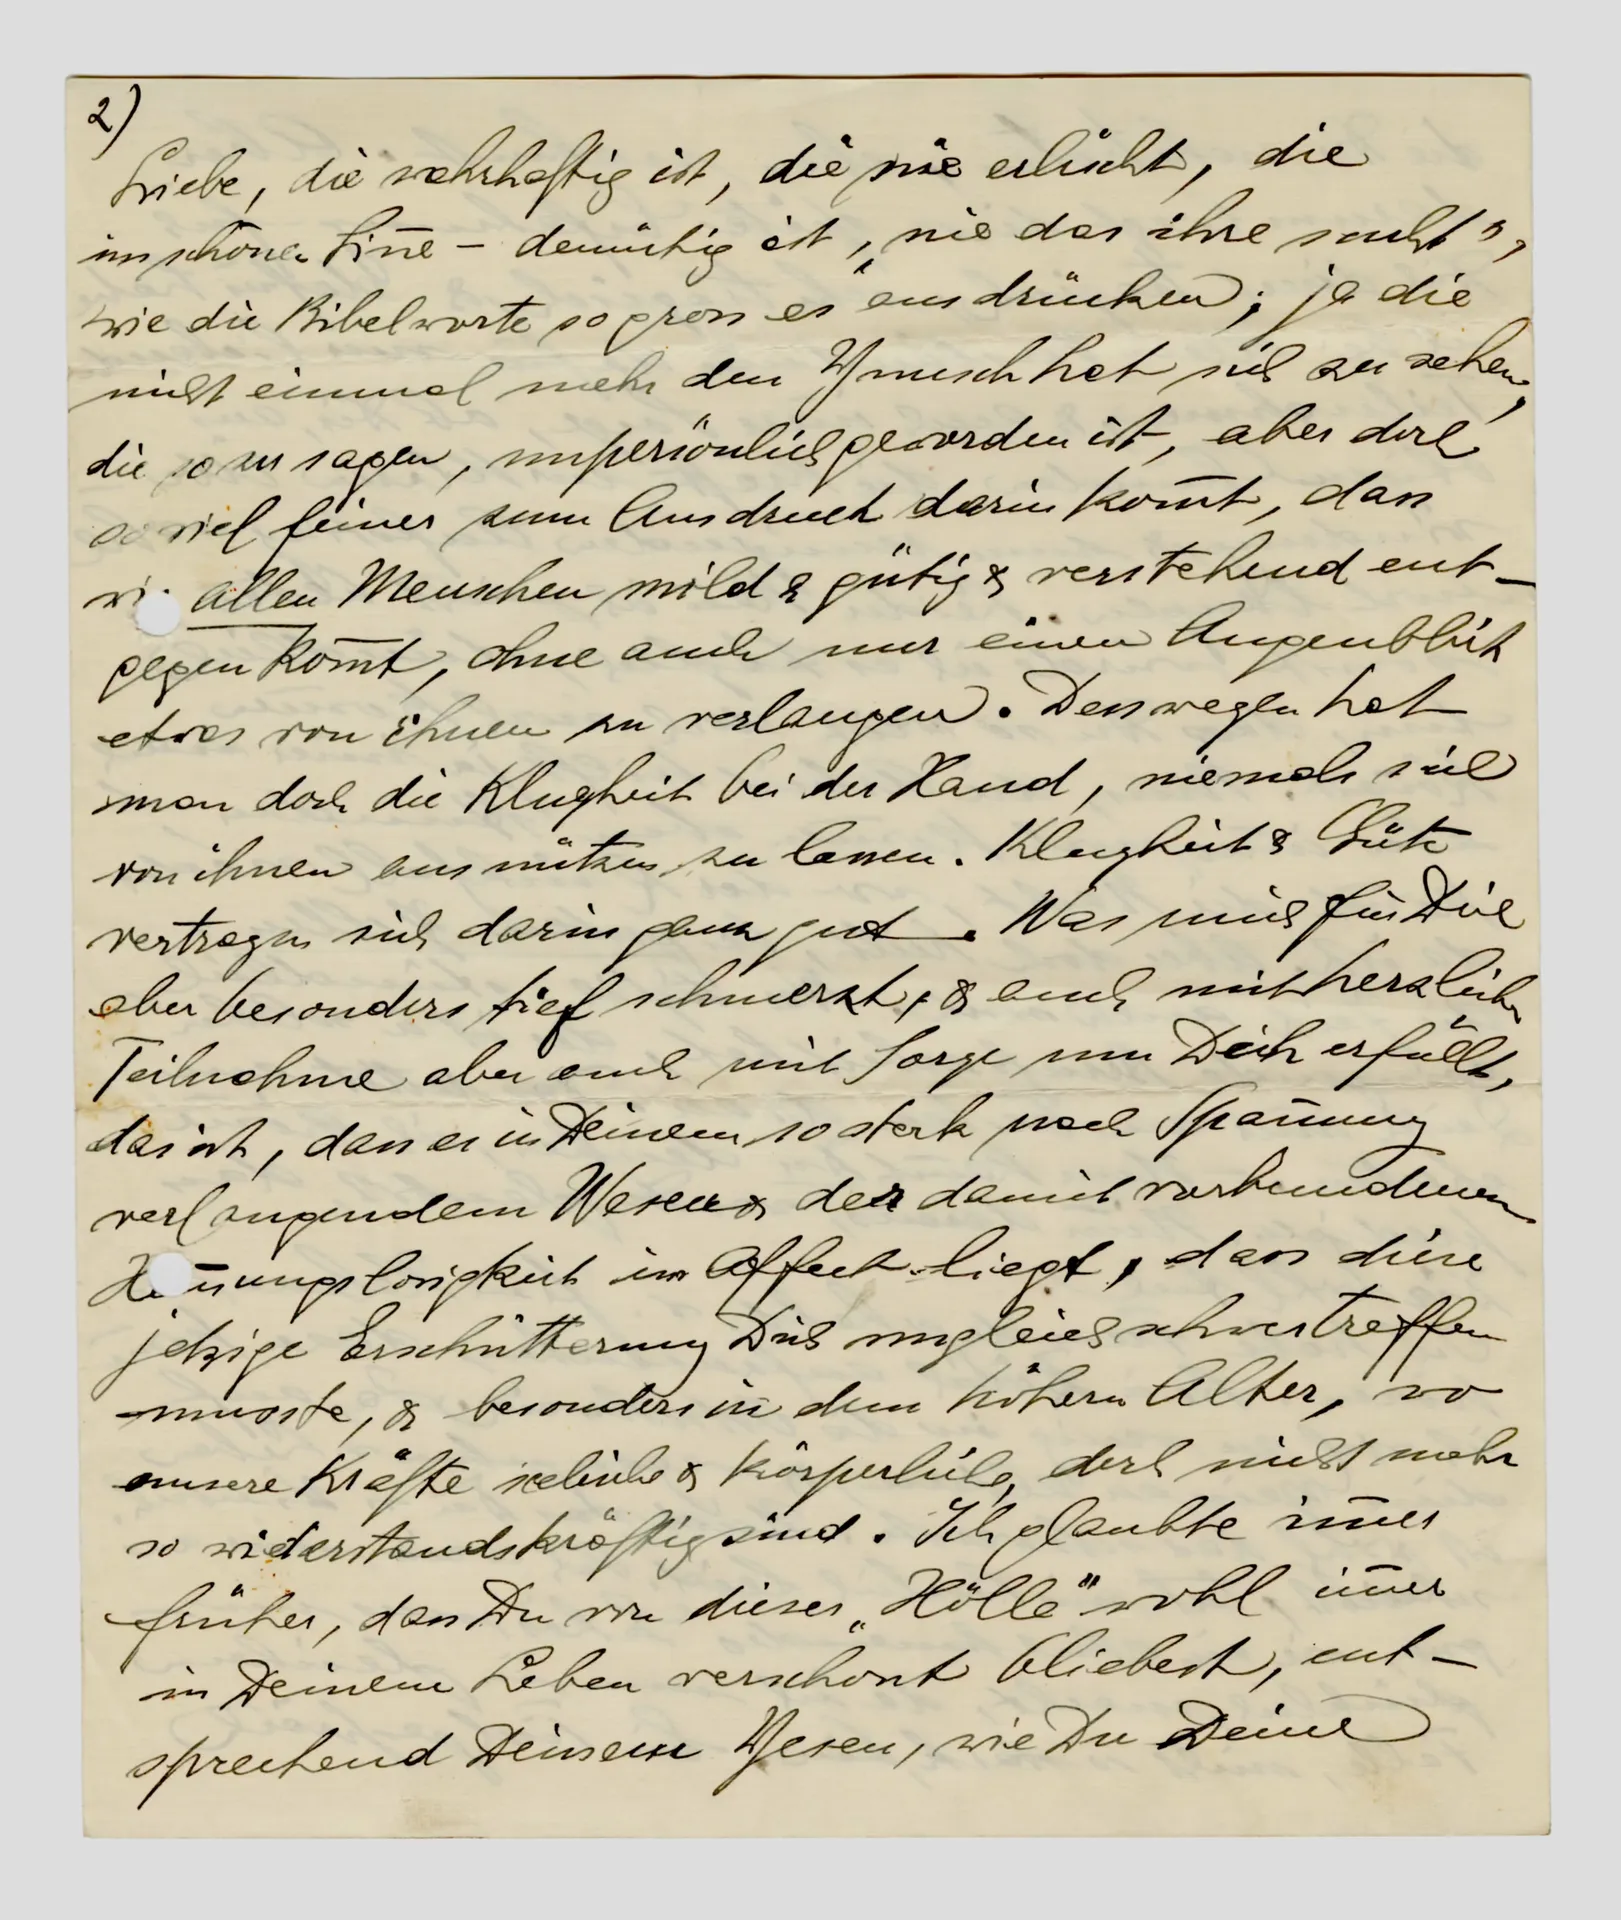 2)
Liebe, die wahrhaftig ist, die nie erlischt, die
im schönen Sin̄e – demütig ist, „nie das ihre sucht",
wie die Bibelworte so gross es ausdrücken; ja die
nicht einmal mehr den Wunsch hat sich zu sehen,
die so zu sagen, unpersönlich geworden ist, aber doch
so viel feiner zum Ausdruck darin kom̄t, dass
allen Menschen mild & gütig & verstehend ent-
gegen kom̄t, ohne auch nur einen Augenblick
etwas von ihnen zu verlangen. Desswegen hat
man doch die Klugheit bei der Hand, niemals sich
von ihnen ausnützen zu lassen. Klugheit & Güte
vertragen sich darin ganz gut. Was mich für Dich
aber besonders tief schmerzt, & auch mit herzlicher
Teilnahme aber auch mit Sorge um Dich erfüllt,
das ist, dass es in Deinem so stark nach Span̄ung
verlangendem Wesen & der damit verbundenen
He m̄ungslosigkeit im Affect liegt, dass diese
jetzige Erschütterung Dich ungleich schwer treffen
musste, & besonders in dem höhern Alter, wo
unsere Kräfte seelische & körperliche, doch nicht mehr
so widerstandskräftig sind. Ich glaubte im̄er
früher, dass Du von dieser „Hölle" wohl im̄er
in Deinem Leben verschont bliebest, ent-
sprechend Deinem Wesen, wie Du Deine